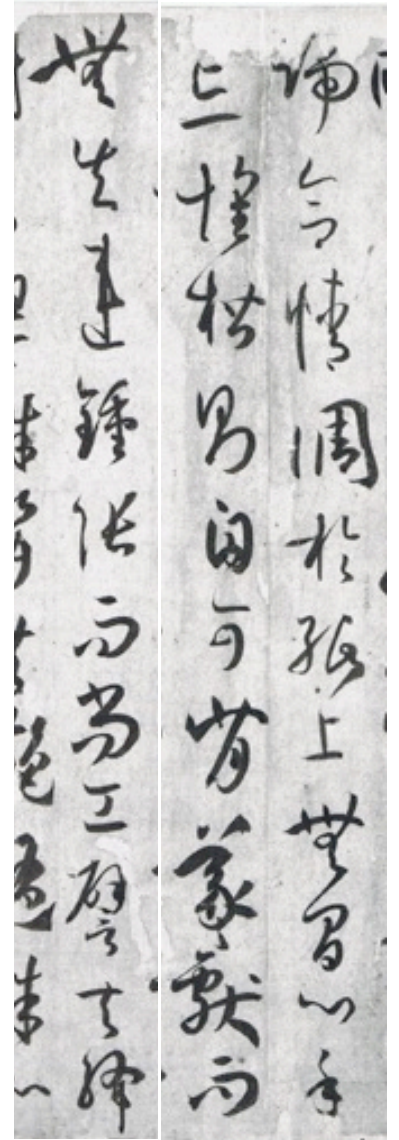 端合情調於紙上無間心手
忘懷楷則自可背羲獻而
無失違鍾張而尚工譬夫絳